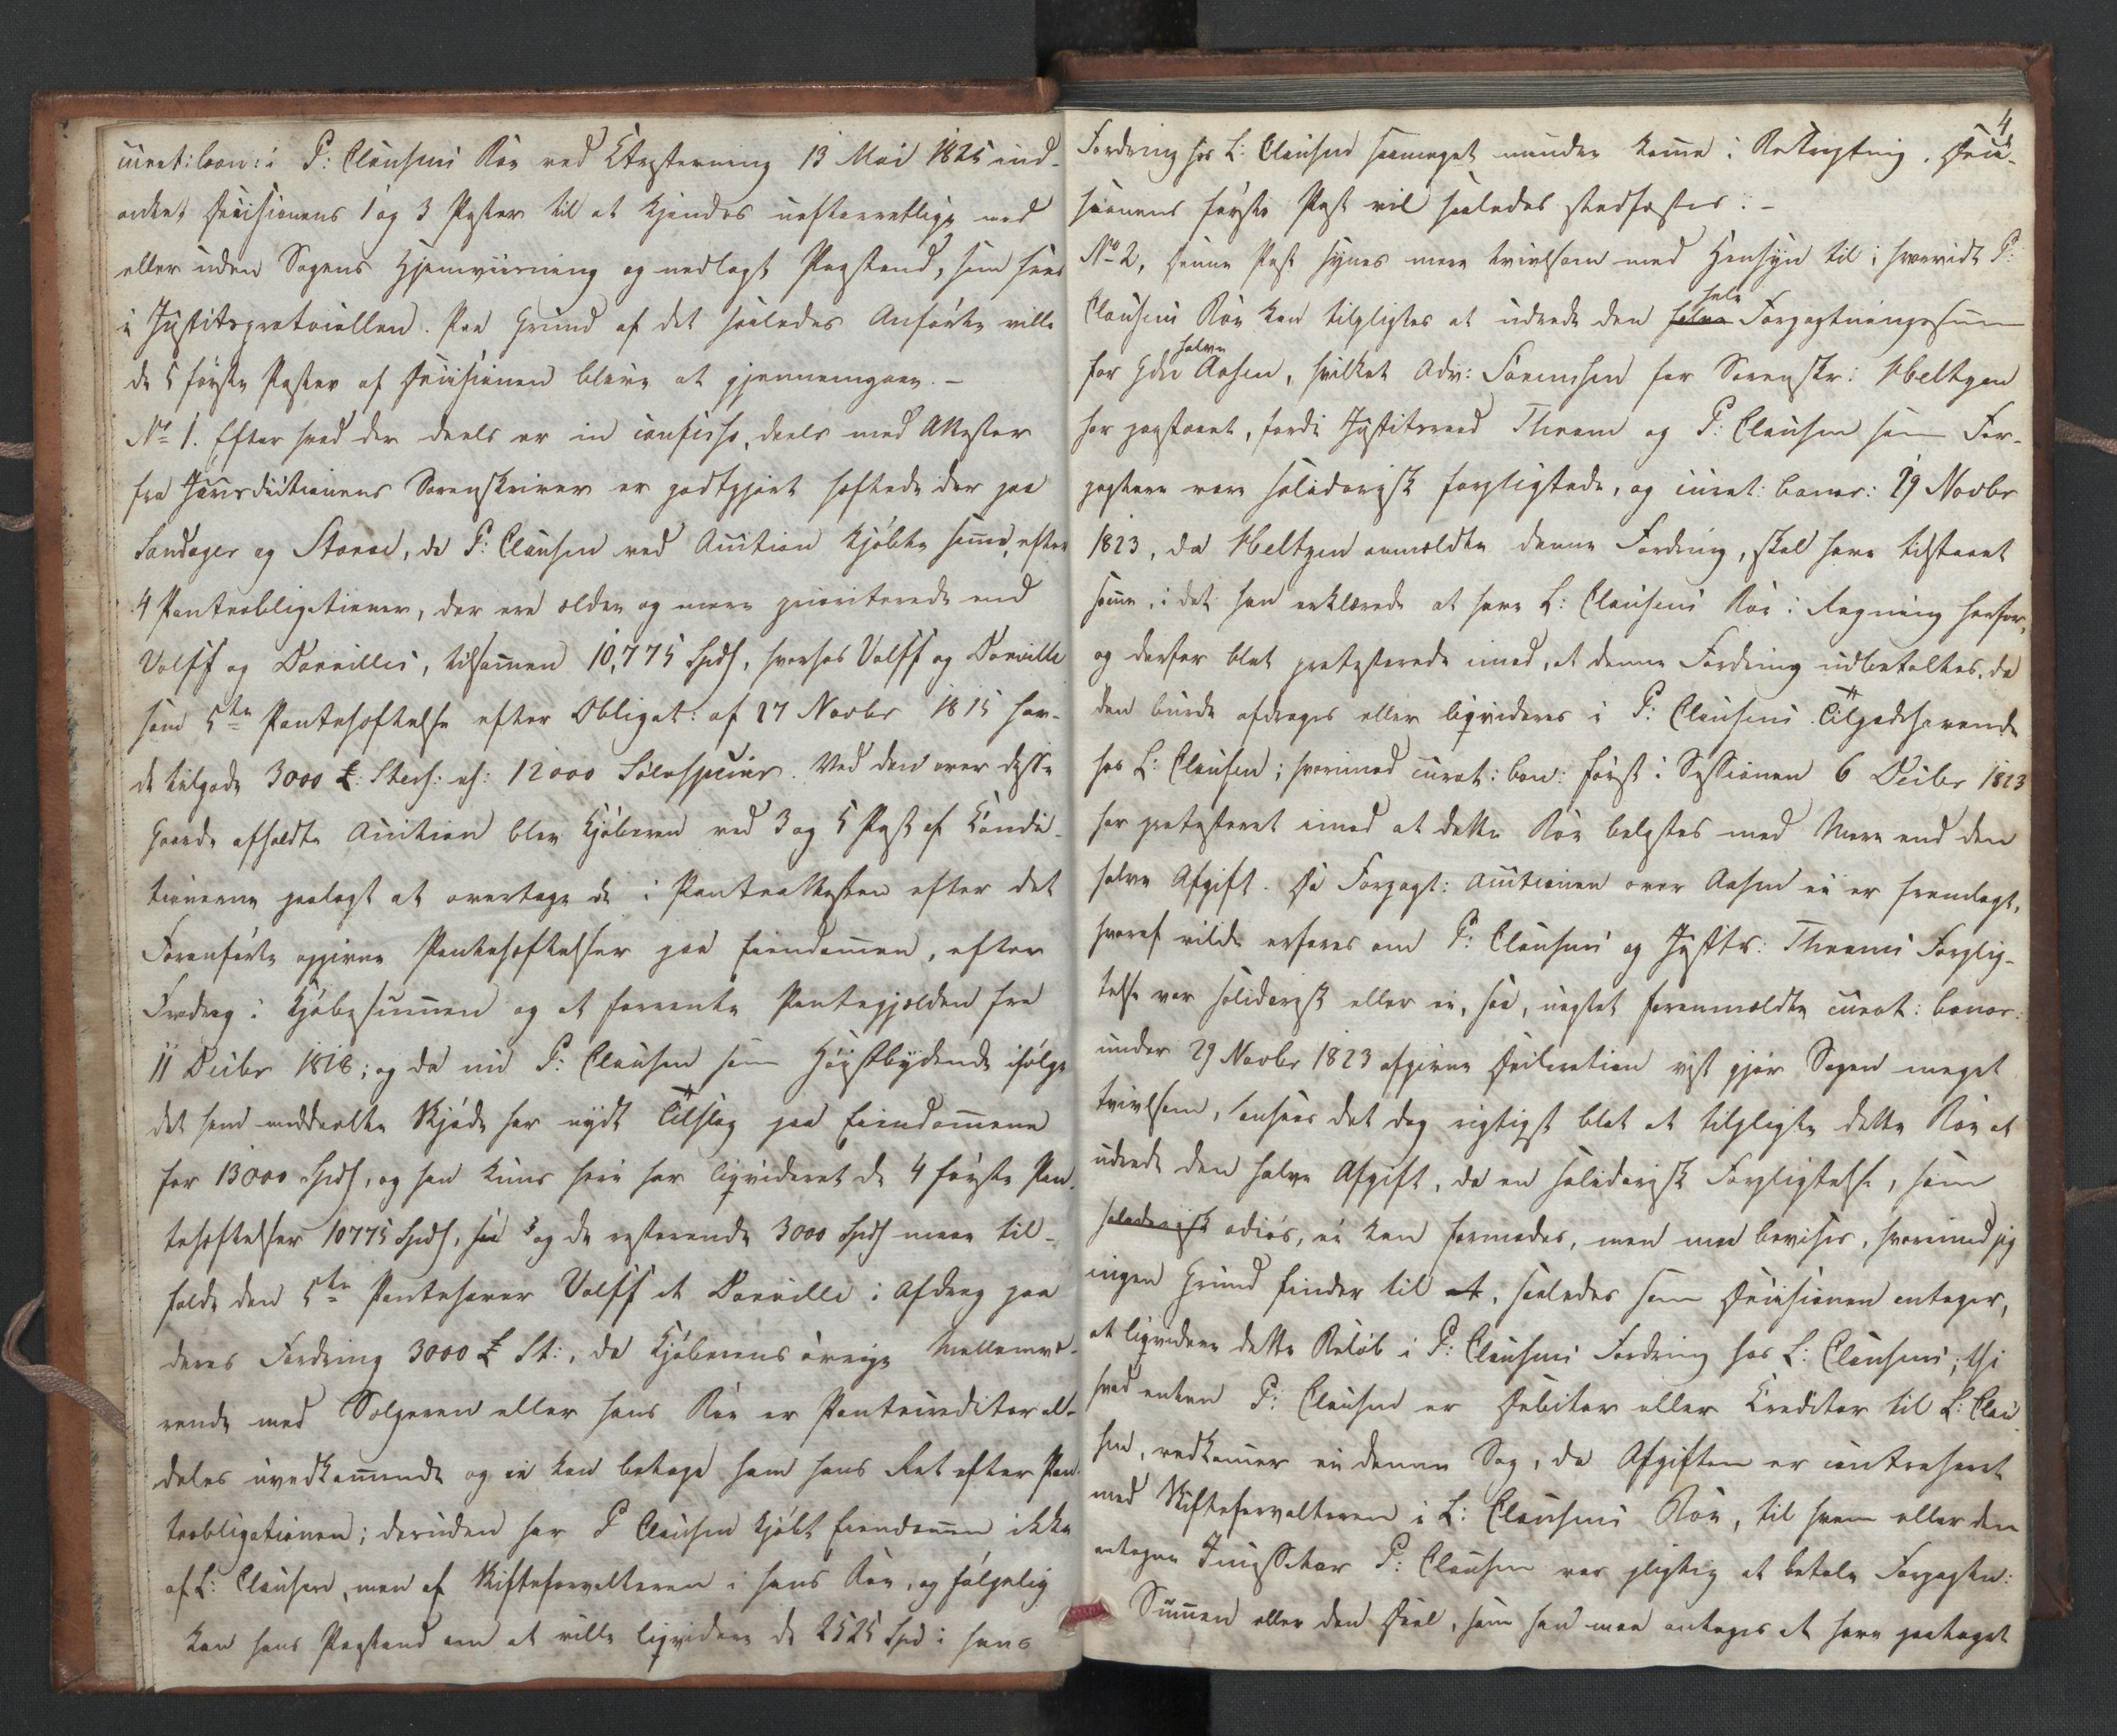 curat: bon: i P: Clausens Boe ved Udestævning 13 Mai 1825 ind-
anket Decisionens 1 og 3 Poster til at kjendes uefterrettlige med
eller uden Sagens Hjemviisning og nedlagt Paastand, som sees
i Justitsprotocollen. Paa Grund af det saaledes Anførte ville
de 5 første Poster af Decisionen blive at gjennemgaae. -
No 1. Efter hvad der deels er in confesso, deels med Attester
fra Jurisdictionens Sorenskriver er godtgjort heftede der paa
Sandager og Stavae, da P: Clausen ved Auction kjøbte samme, efter
4 Panteobligationer, der ere ældre og mere prioriterede end
Volff og Dorvilles, tilsammen 10,775 Spd, hvorhos Volff og Dorville
som 5te Panteheftelse efter Obligat: af 27 Novbr 1815 hav-
de tilgode 3000 £: Sterl: el: 12000 Sølvspecier. Ved den over disse
Gaarde afholdte Auction blev Kjøberen ved 3 og 5 Post af Condi-
tionerne paalagt at overtage de i Panteattesten efter det
Foranførte opgivne Panteheftelser paa Eiendommen, efter
Fradrag i Kjøbesummen og at forrente Pantegjælden fra
11 Decbr 1818; og da nu P: Clausen som Høistbydende ifølge
det ham meddeelte Skjøde har nydt Tilslag paa Eiendommene
for 13000 Spd, og han kuns heri har liqvideret de 4 første Pan-
teheftelser 10775 Spd, saa og de resterende 3000 Spd maae til-
falde den 5te Pantehaver Volff et Dorville i Afdrag paa
deres Fordring 3000 £ St:, da Kjøberens øvrige Mellemvæ-
rende med Sælgeren eller hans Boe er Pantecreditor al-
deles uvedkommende og ei kan betage ham hans Ret efter Pan-
teobligationen; desuden har P Clausen kjøbt Eiendommen ikke
af L: Clausen, men af Skifteforvalteren i hans Boe, og følgelig
kan hans Paastand om at ville liqvidere de 2525 Spd i hans
4
Fordring hos L: Clausen saameget mindre komme i Betragtning. Deci-
sionens første Post vil saaledes stadfæstes. -
No 2, Denne Post synes mere tvivlsom med Hensyn til i hvorvidt P:
Clausens Boe kan tilpligtes at udrede den halve hele Forpagtningssum
for Gdn halve Aasen, hvilket Adv: Sørensen for Sorenskr: Meltzen
har paastaaet, fordi Justitsraad Thraem og P: Clausen som For-
pagtere vare solidarisk forpligtede, og curat: bonor: 29 Novbr
1823, da Meltzen anmeldte denne Fordring, skal have tilstaaet
samme, i det han erklærede at have L: Clausens Boe i Regning herfor,
og derfor blot protesterede imod, at denne Fordring udbetaltes, da
den burde afdrages eller liqvideres i P: Clausens Tilgodehavende
hos L: Clausen; hvorimod curat: bon: først i Sessionen 6 Decbr 1823
har protesteret imod at dette Boe belastes med Mere end den
halve Afgift. Da Forpagt: Auctionen over Aasen ei er fremlagt,
hvoraf vilde erfares om P: Clausens og Justitsr: Thraems Forplig-
telse var solidarisk eller ei, saa, uagtet foranmeldte curat: bonor:
under 29 Novbr 1823 afgivne Declaration vist gjør Sagen meget
tvivlsom, ansees det dog rigtigst blot at tilpligte dette Boe at
udrede den halve Afgift, da en solidarisk Forpligtelse, som
solidarisk odiøs, ei kan formodes, men maa bevises, hvorimod jeg
ingen Grund finder til at, saaledes som Decisionen antager,
at liqvidere dette Beløb i P: Clausens Fordring hos L: Clausens; thi
hvad enten P: Clausen er Debitor eller Creditor til L: Clau-
sen, vedkommer ei denne Sag, da Afgiften er contraheret
med Skifteforvalteren i L: Clausens Boe, til hvem eller den
antagne Incassator P: Clausen var pligtig at betale Forpagtn:
Summen eller den Deel, som han maa antages at have paataget